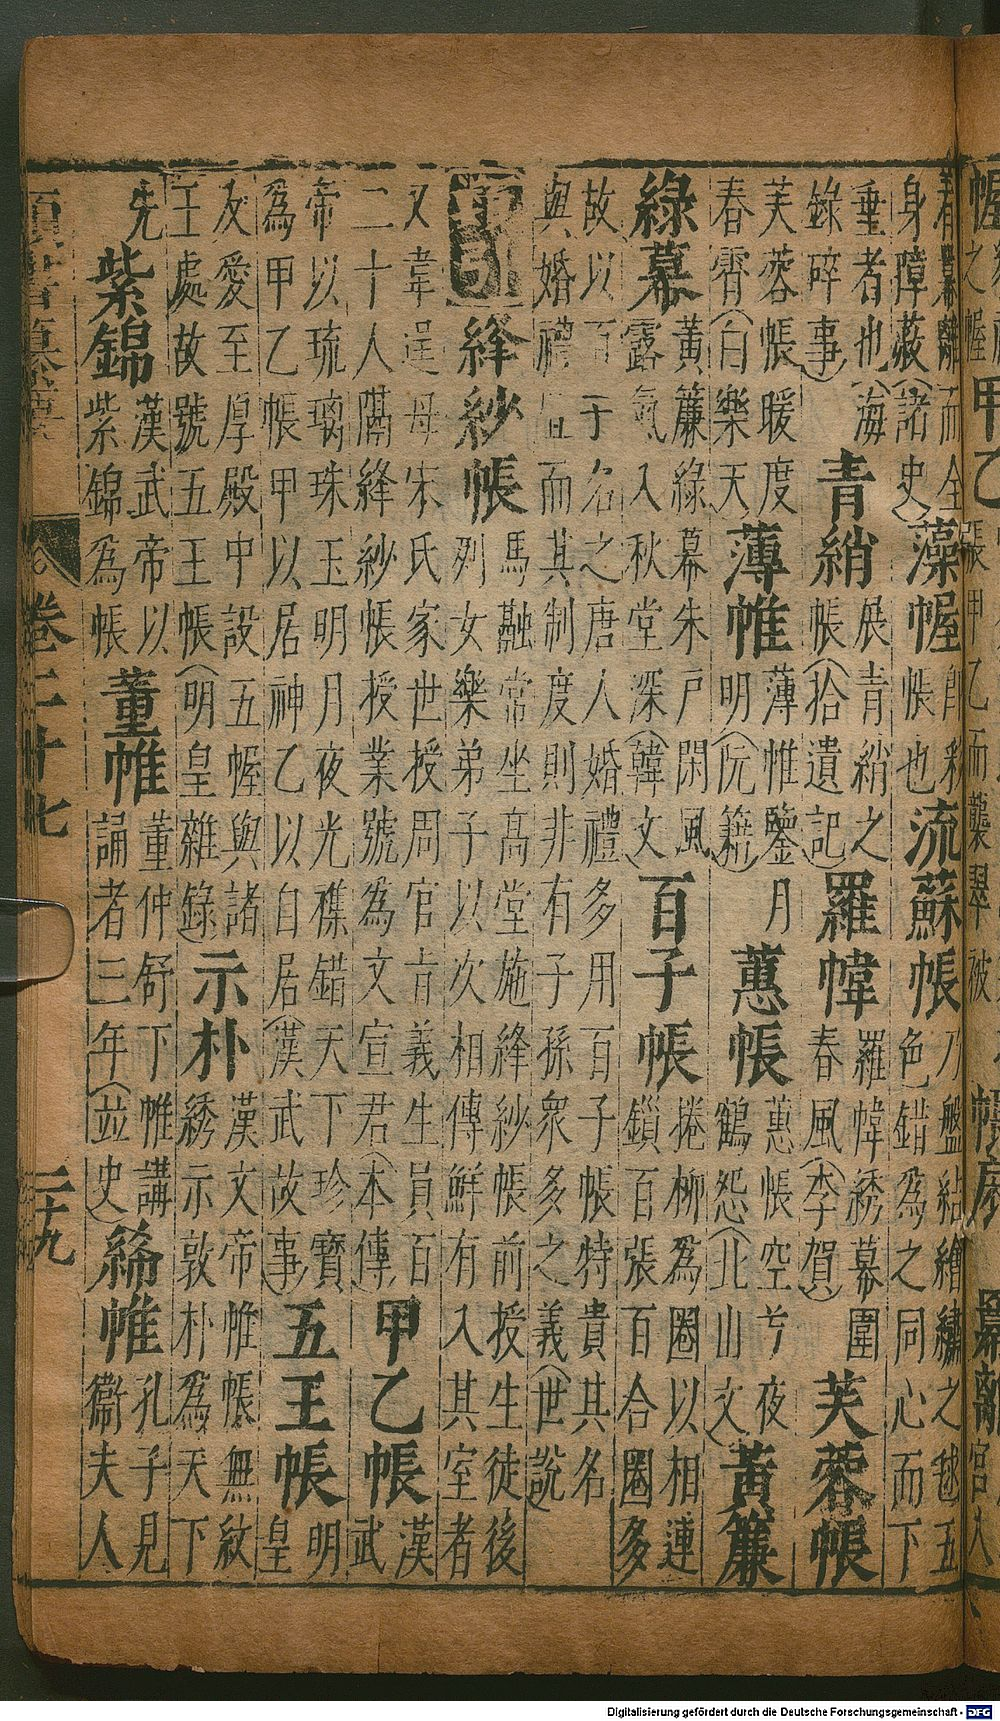 着羃䍦而全
身障蔽(諸史)藻幄
帳也流蘇帳乃盤結繪繡之毬五
色錯爲之同心而下
垂者也(海
錄碎事)青綃展青綃之
帳(拾遺記)羅幃羅幃綉幕圍
春風(李賀)芙蓉帳
芙蓉帳暖度
春宵(白樂天)薄帷薄帷鑒月
明(阮籍)蕙帳蕙帳空兮夜
鶴怨(北山文)黃簾
綠幕黃簾綠幕朱户閑風
露氣入秋堂深(韓文)百子帳捲柳爲圈以相連
鎖百張百合圈多
故以百子名之唐人婚禮多用百子帳特貴其名
與婚禮宜而其制度則非有子孫衆多之義(世說)
事引 絳紗帳馬融常坐高堂施絳紗帳前授生徒後
列女樂弟子以次相傳鮮有入其室者
又韋逞母宋氏家世授周官音義生員百
二十人隔絳紗帳授業號爲文宣君(本傳)甲乙帳漢
武
帝以琉璃珠玉明月夜光襍錯天下珍寶
爲甲乙帳甲以居神乙以自居(漢武故事)五王帳明
皇
友愛至厚殿中設五幄與諸
王處故號五王帳(明皇雜錄)示朴漢文帝帷帳無紋
綉示敦朴爲天下
先紫錦漢武帝以
紫錦爲帳董帷董仲舒下帷講
誦者三年(並史)絺帷孔子見
衞夫人
卷二十七
二十九
Digitalisierung gefördert durch die Deutsche Forschungsgemeinschaft - DFG